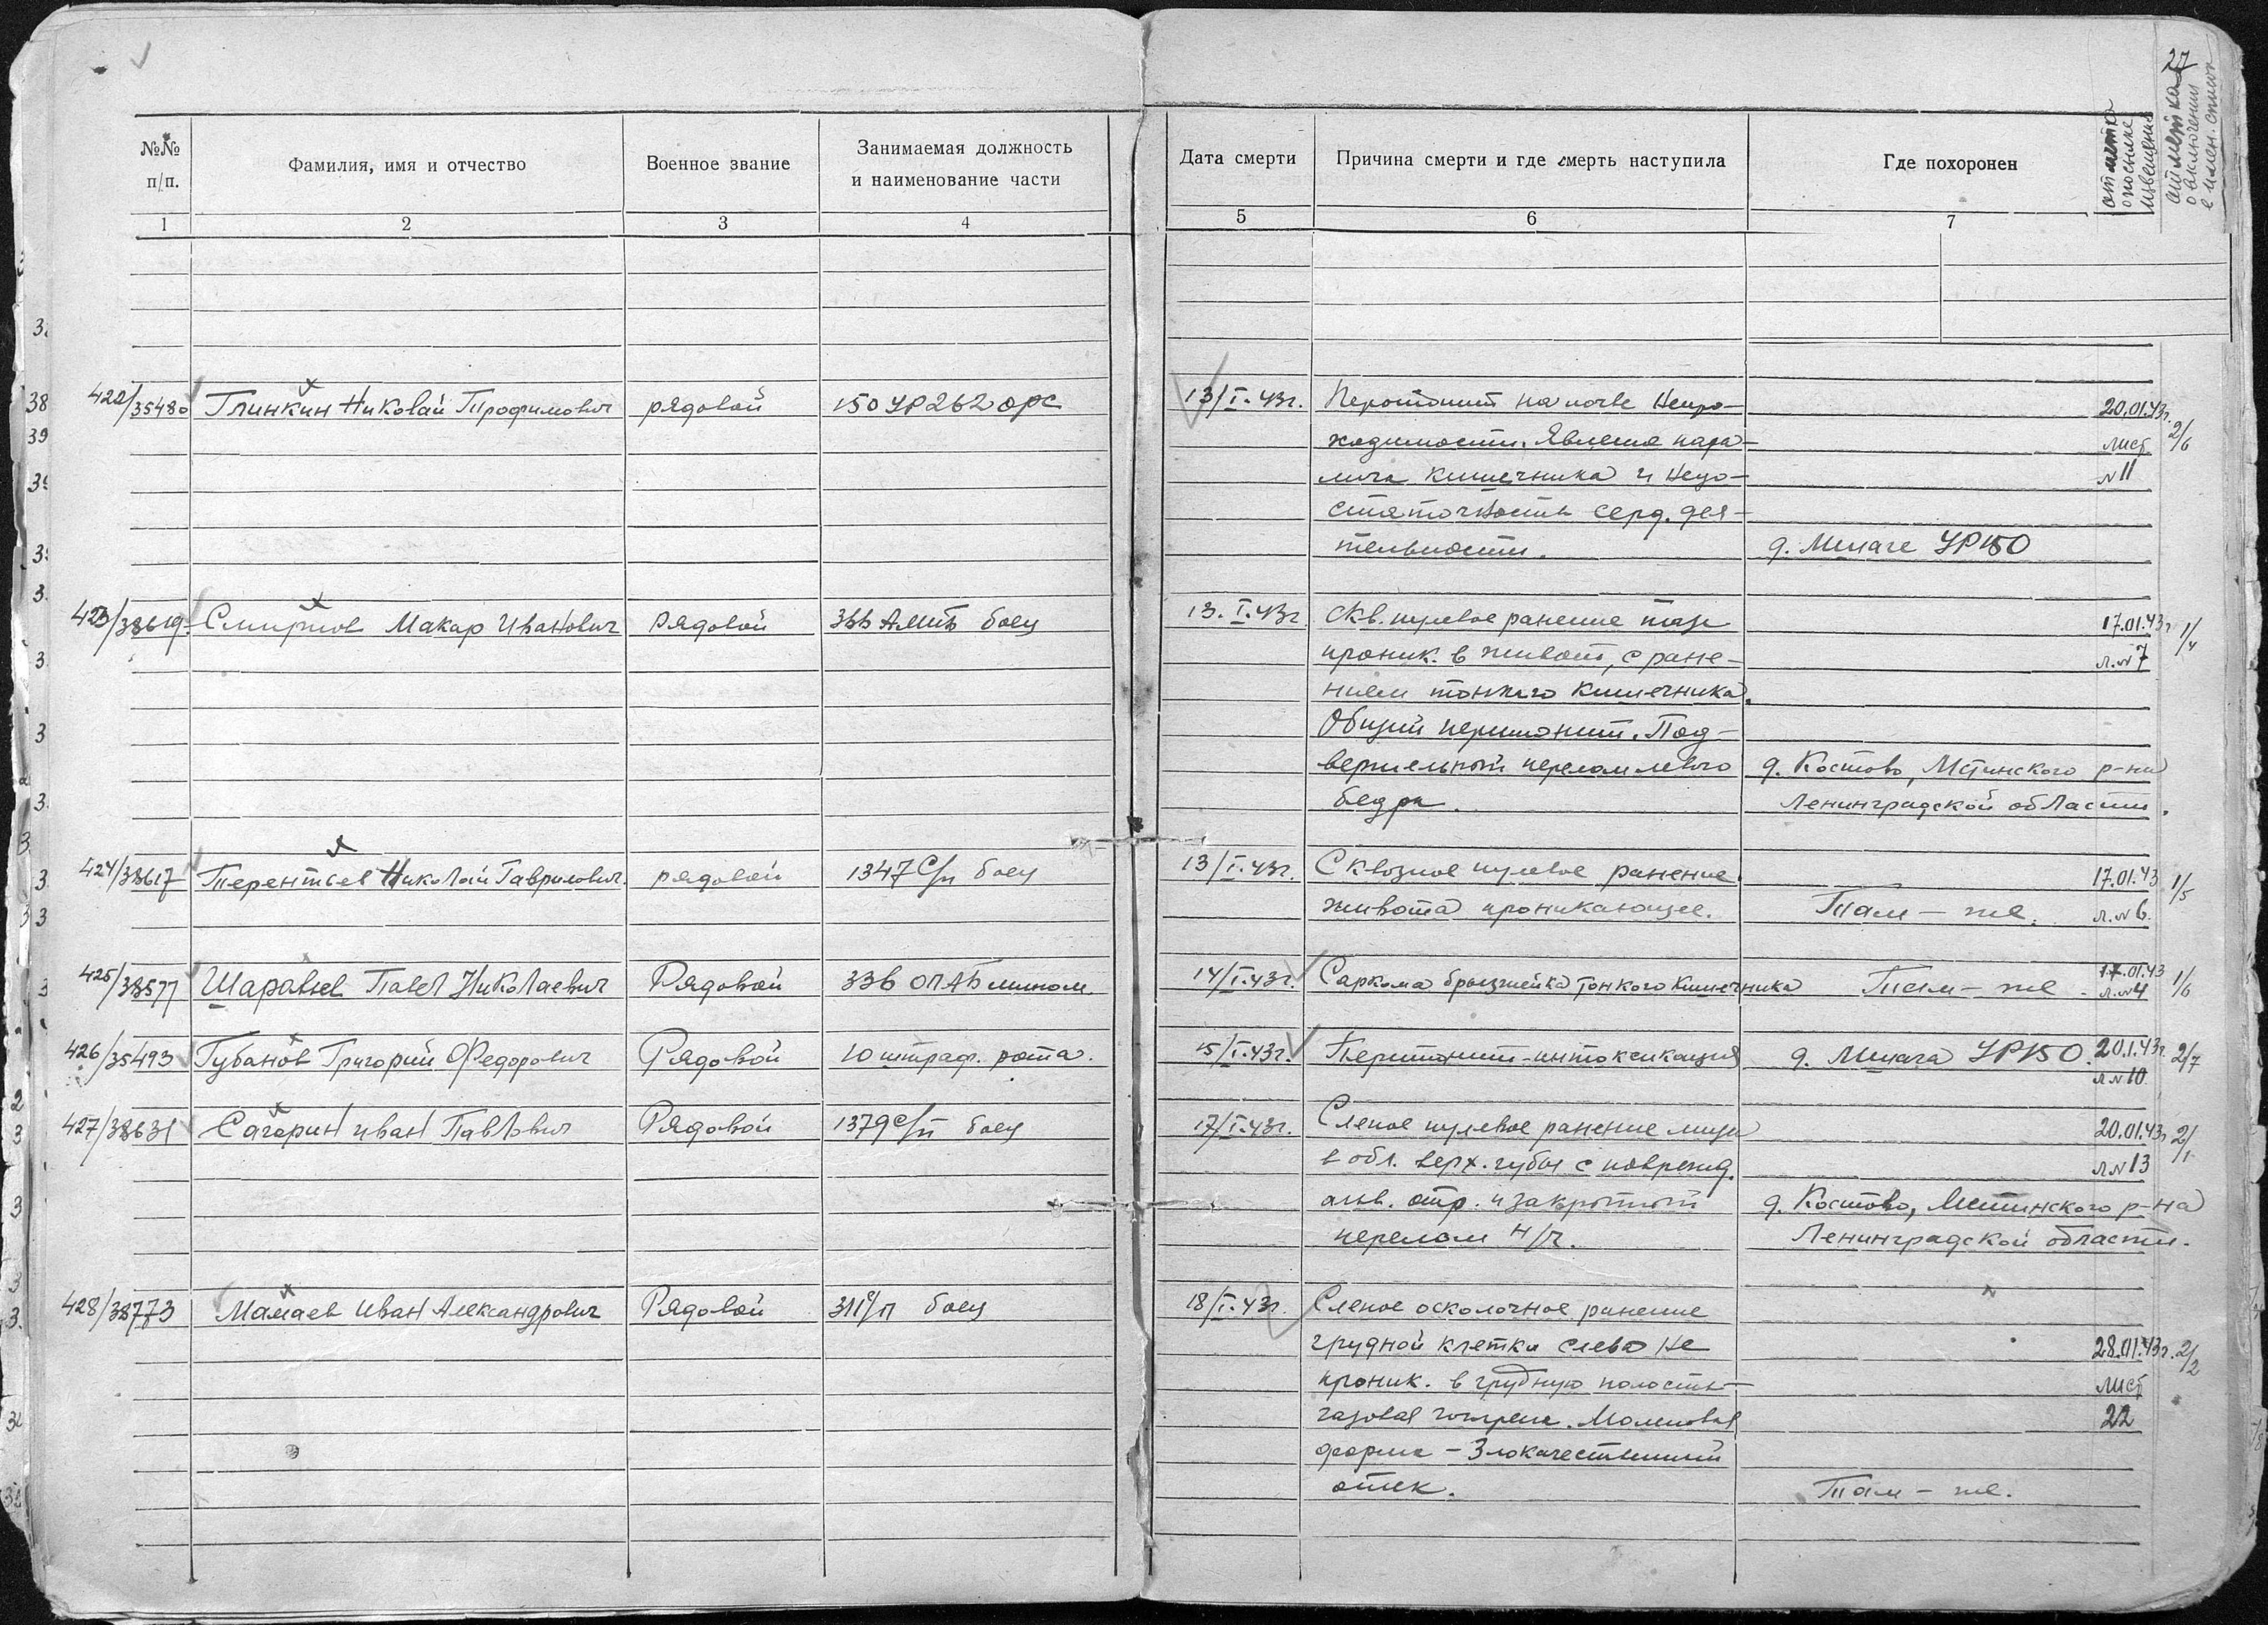 27
№№ п/п.
Фамилия, имя и отчество
Военное звание
Занимаемая должность и наименование части
Дата смерти
Причина смерти и где смерть наступила
Где похоронен
отметка о посылке извещения
отметка о включении в имен. список
1 2 3 4 5 6 7
422/35480 Глинкин Николай Трофимович рядовой 150 УР 262 орс 13/I.43г. Перотонит на почве Непро- 20.01.43г. 2/6
ходимости. Явления пара- лист
лича кишечника и Недо- №11
статочность серд. дея-
тельности. д. УР150
423/38619 Смирнов Макар Иванович Рядовой боец 13.I.43г. Скв. пулевое ранение таза 17.01.43г 1/4
проник. в живот, с ране- л.№7
нием тонкого кишечника.
Общий перитонит. Под-
вертельный перелом левого д. Костово, Мстинского р-на
бедра. Ленинградской области.
424/38617 Терентьев Николай Гаврилович. рядовой 1347 с/п боец 13/I.43г. Сквозное пулевое ранение 17.01.43 1/5
живота проникающее. Там-же. л.№6
425/38577 Павел Николаевич Рядовой 336 ОПАБ мином. 14/I.43г. Саркома брызжейка тонкого кишечника Там-же 17.01.43 1/6
л.№4
426/35493 Губанов Григорий Федорович Рядовой 10 штраф. рота. 15/I.43г. Перитонит-интоксикация д. УР150. 20.1.43г. 2/7
л№10
427/38631 Сагарин Иван Павлович Рядовой 1379 с/п боец 17/I.43г. Слепое пулевое ранение лица 20.01.43г 2/1
в обл. верх. губы с поврежд. л№13
альв. отр. и закрытый д. Костово, Мстинского р-на
перелом н/ч. Ленинградской области.
428/38773 Мамаев Иван Александрович Рядовой 311 с/п боец 18/I.43г. Слепое осколочное ранение
грудной клетки слева не 28.01.43г. 2/2
проник. в грудную полость- лист
газовая гангрена. 22
форма - Злокачественный
отек. Там-же.